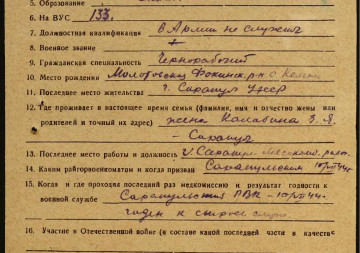 5. Образование
6. На ВУС 133.
7. Должностная квалификация в Армии не служил
8. Военное звание
9. Гражданская специальность Чернорабочий
10. Место рождения Молотовская Фокинск. р-н с.
11. Последнее место жительства г. Сарапул УАССР
12. Где проживает в настоящее время семья (фамилия, имя и отчество жены или
родителей и точный их адрес) жена Калабина З. Я.
– Сарапул
13. Последнее место работы и должность г. Сарапул
14. Каким райгорвоенкоматом и когда призван Сарапульским
15. Когда и где проходил последний раз медкомиссию и результат годности к
военной службе Сарапульский РВК –
годен к строев. служ.
16. Участие в Отечественной войне (в составе какой последней части и в качестве